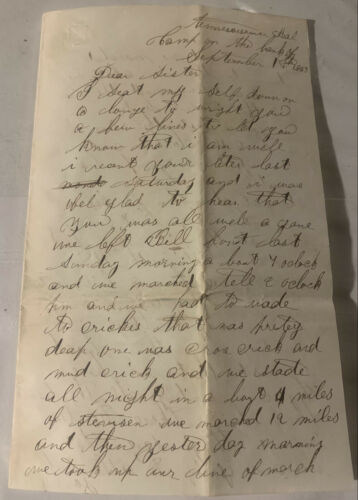 Camp on the bank of
September 1
Dear Sister
I seat my self down
to write you
a few lines to let you
know that i am well
i your leter last
Saturday and i was
glad to hear that
you was all well
we left Bell last
Sunday morning a bout 4 oclock
and we marched tell 2 oclock
and we had to wade
to cricks that was pritey
deap one was crick and
mud crick and we stade
all night in a bout 4 miles
of we marched 12 miles
and then yester day morning
we took up our line of march